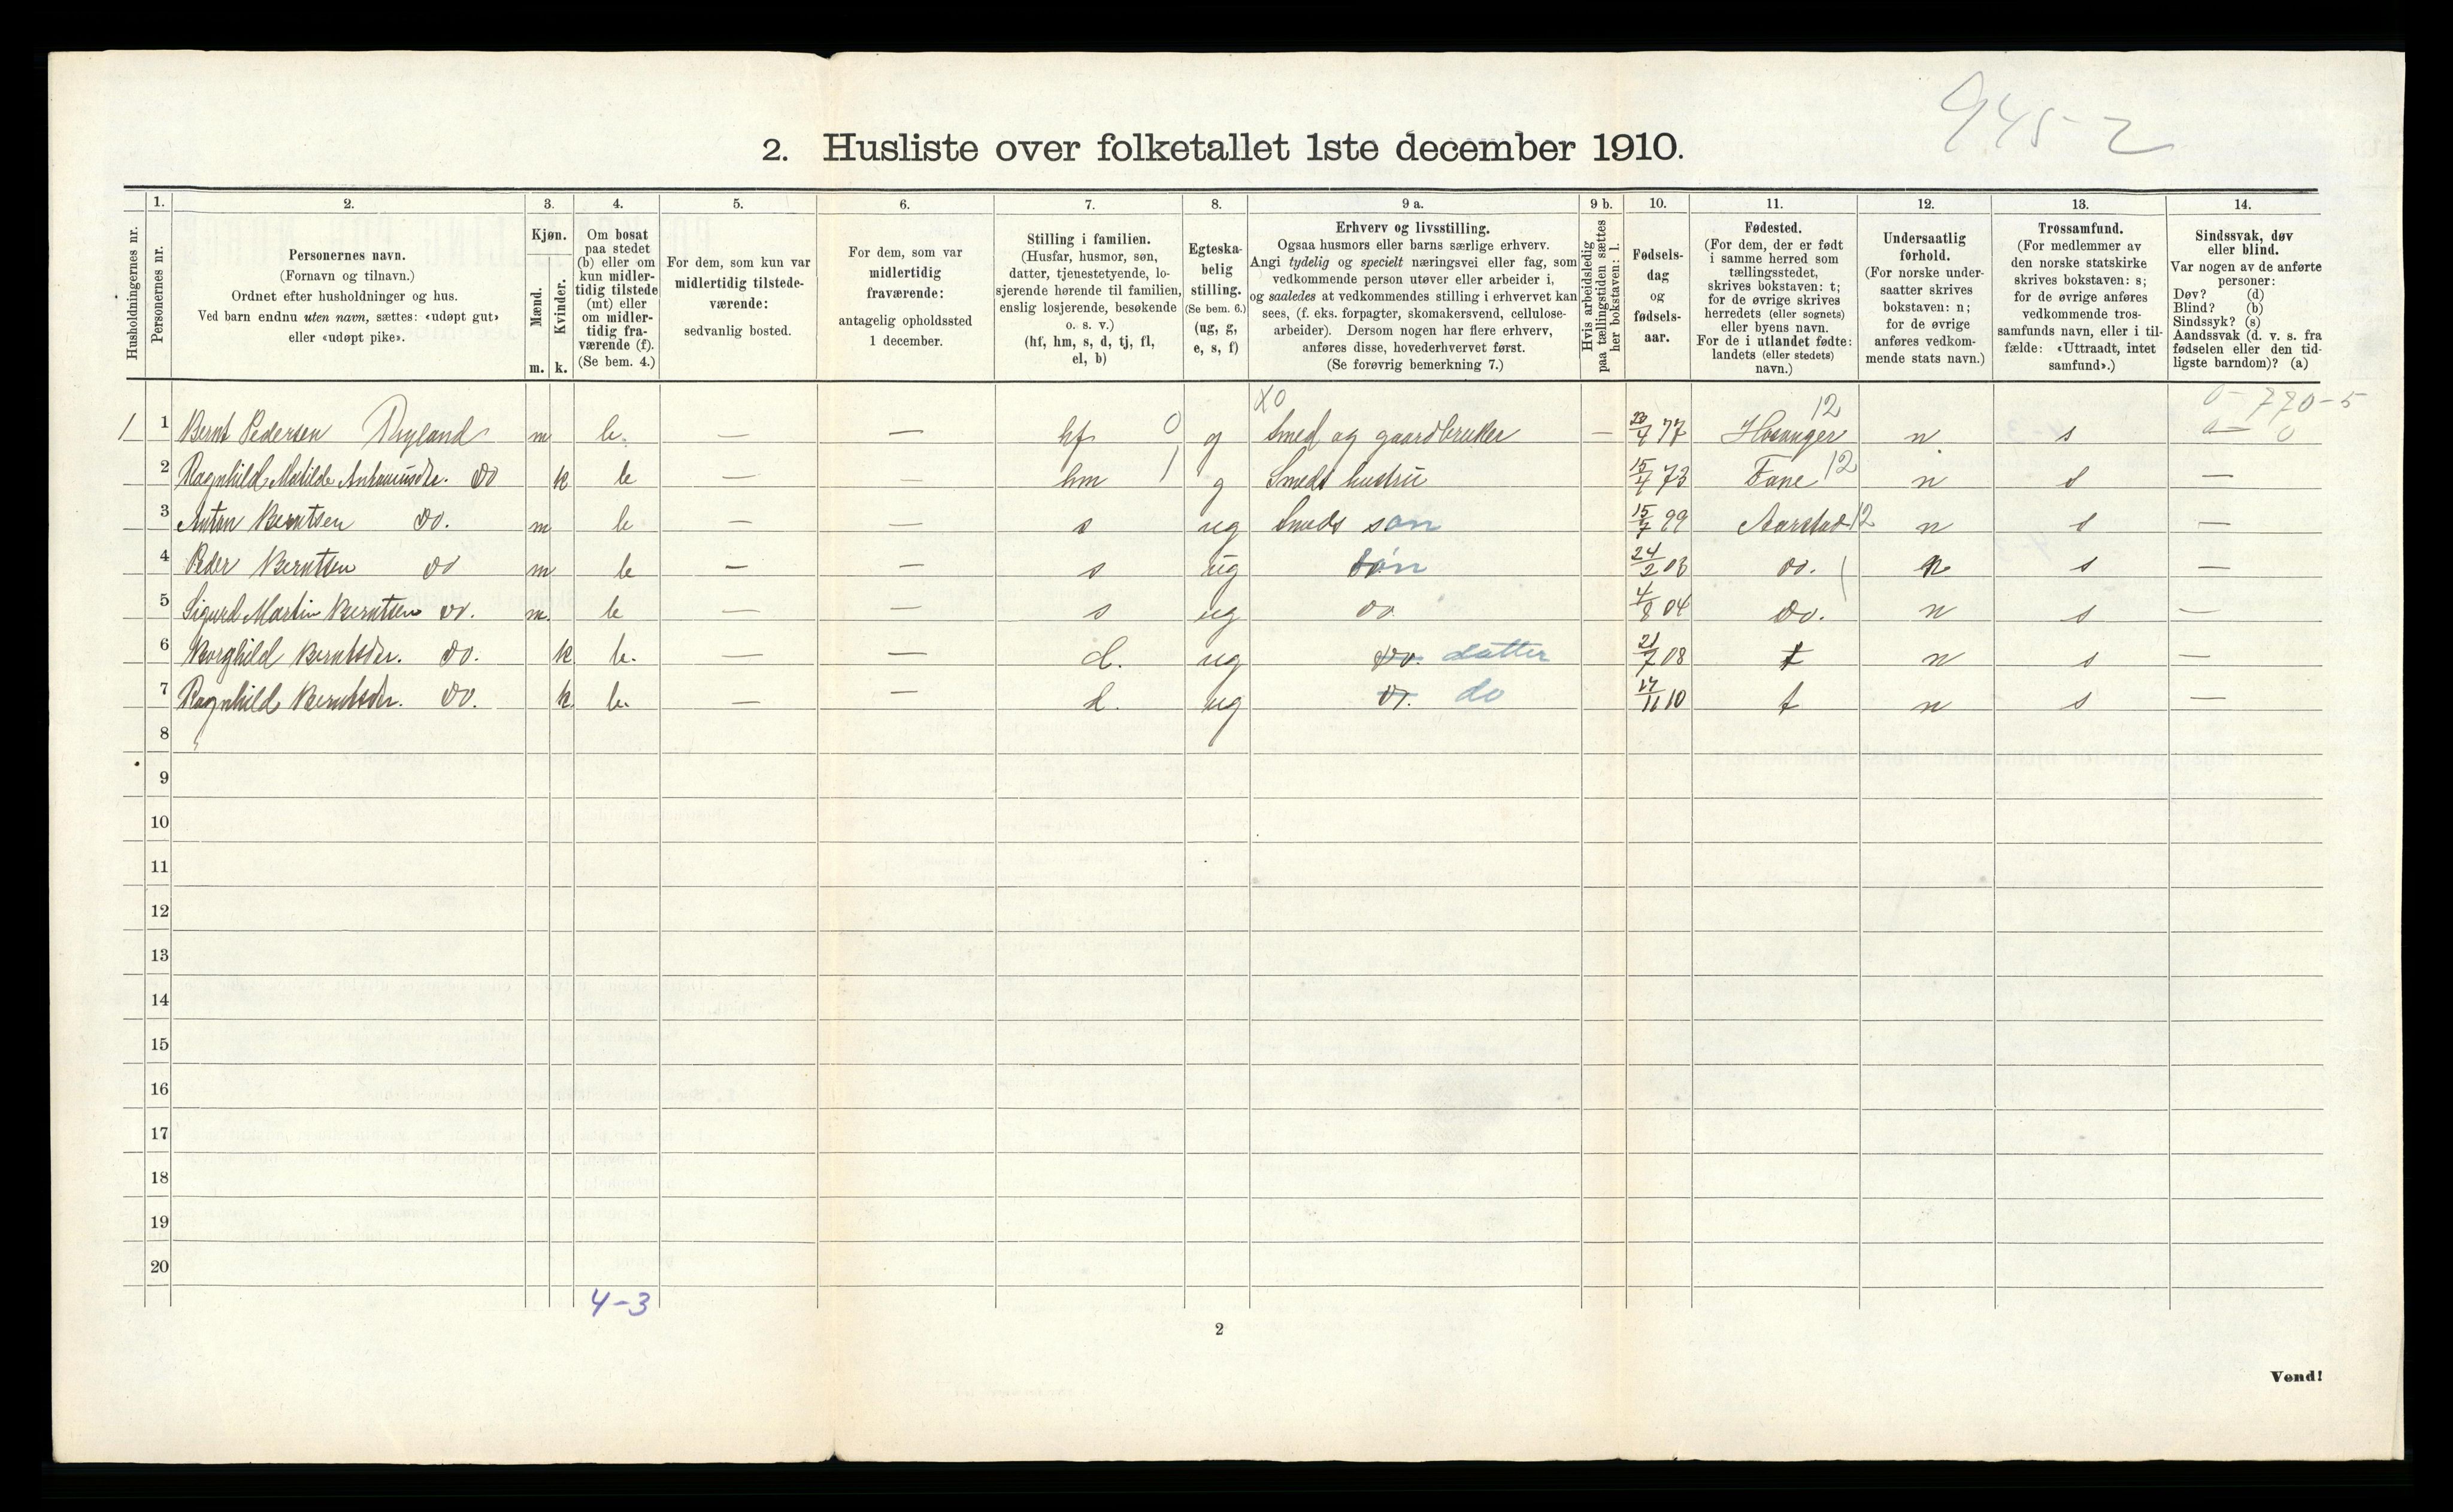 945-2
2. Husliste over folketallet 1ste december 1910.
Husholdningernes nr.
1.
Personernes nr.
2.
Personernes navn.
(Fornavn og tilnavn.)
Ordnet efter husholdninger og hus.
Ved barn endnu uten navn, sættes: «udøpt gut»
eller «udøpt pike».
3.
Kjøn.
Mænd.
Kvinder.
m. k.
4.
Om bosat
paa stedet
(b) eller om
kun midler-
tidig tilstede
(mt) eller
om midler-
tidig fra-
værende (f).
(Se bem. 4.)
5.
For dem, som kun var
midlertidig tilstede-
værende:
sedvanlig bosted.
6.
For dem, som var
midlertidig
fraværende:
antagelig opholdssted
1 december.
7.
Stilling i familien.
(Husfar, husmor, søn,
datter, tjenestetyende, lo-
sjerende hørende til familien,
enslig losjerende, besøkende
o. s. v.)
(hf, hm, s, d, tj, fl,
el, b)
8.
Egteska-
belig
stilling.
(Se bem. 6.)
(ug, g,
e, s, f)
9 a.
Erhverv og livsstilling.
Ogsaa husmors eller barns særlige erhverv.
Angi tydelig og specielt næringsvei eller fag, som
vedkommende person utøver eller arbeider i,
og saaledes at vedkommendes stilling i erhvervet kan
sees, (f. eks. forpagter, skomakersvend, cellulose-
arbeider). Dersom nogen har flere erhverv,
anføres disse, hovederhvervet først.
(Se forøvrig bemerkning 7.)
9 b.
Hvis arbeidsledig
paa tællingstiden sættes
her bokstaven: l.
10.
Fødsels-
dag
og
fødsels-
aar.
11.
Fødested.
(For dem, der er født
i samme herred som
tællingsstedet,
skrives bokstaven: t;
for de øvrige skrives
herredets (eller sognets)
eller byens navn.
For de i utlandet fødte:
landets (eller stedets)
navn.)
12.
Undersaatlig
forhold.
(For norske under-
saatter skrives
bokstaven: n;
for de øvrige
anføres vedkom-
mende stats navn.)
13.
Trossamfund.
(For medlemmer av
den norske statskirke
skrives bokstaven: s;
for de øvrige anføres
vedkommende tros-
samfunds navn, eller i til-
fælde: «Uttraadt, intet
samfund».)
14.
Sindssvak, døv
eller blind.
Var nogen av de anførte
personer:
Døv? (d)
Blind? (b)
Sindssyk? (s)
Aandssvak (d. v. s. fra
fødselen eller den tid-
ligste barndom)? (a)
X0 12 0-770-5
1 1 Bernt Pedersen Ryland m b. — — hf 0 g Smed og gaardbruker — 23/4 77 Hosanger n s a— 0
2 Ragnhild Matilde Antoniusdtr. do k b — — hm 1 g Smeds hustru 15/7 73 Fane 12 n s —
3 Anton Berntsen do. m b — — s ug Smeds søn 15/7 99 Aarstad 12 n s —
4 Peder Berntsen do m b — — s ug søn 24/2 03 do. n s —
5 Sigurd Martin Berntsen do. m. b — — s ug do 4/8 04 do. n s —
6 Borghild Berntsdtr. do. k b. — — d. ug do. datter 21/7 08 t n s —
7 Ragnhild Berntsdtr. do. k. b. — — d. ug do. do 17/11 10 t n s —
8
9
10
11
12
13
14
15
16
17
18
19
20
4-3
2
Vend!